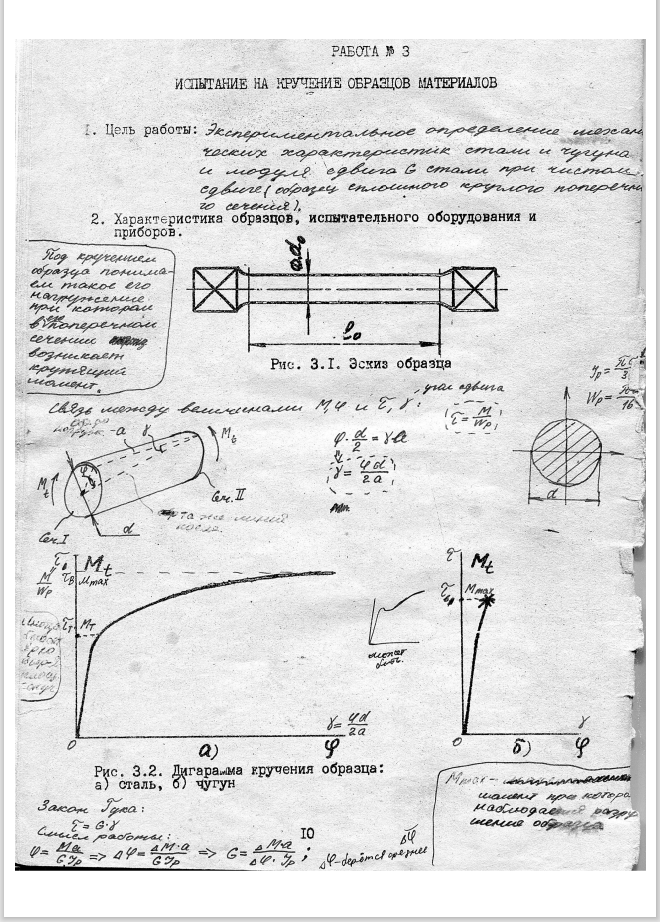 РАБОТА № 3
ИСПЫТАНИЕ НА КРУЧЕНИЕ ОБРАЗЦОВ МАТЕРИАЛОВ
I. Цель работы: Экспериментальное определение механ
ческих характеристик стали и чугуна
и модуля сдвига G стали при чистом
сдвиге (образец сплошного круглого поперечно
го сечения).
2. Характеристика образцов, испытательного оборудования и
приборов.
Под кручением
образца понима-
ем такое его
нагружение
при котором
в его поперечном
сечении
возникает
крутящий
момент.
ø d₀
l₀
Рис. 3.I. Эскиз образца
Связь между величинами M, φ и τ, γ:
угол сдвига
τ = M/Wp
φ·d/2 = γa
γ = φd/2a
Jp =
Wp =
a
γ
Mt
Mt
φ
Сеч. II
Сеч. I
d
d
τ
M/Wp
τв
Mt
Mmax
τт
Mт
γ = φd/2a
0
а)
φ
может
быть.
τ
Mt
τв
Mmax
0
б)
γ
φ
Рис. 3.2. Дигарамма кручения образца:
а) сталь, б) чугун
Mmax -
момент при котором
наблюдается разру
шение образца
Закон Гука:
τ = G·γ
Смысл работы:
φ = Ma/GJp => Δφ = ΔM·a/GJp => G = ΔM·a/Δφ·Jp ;
Δφ - берётся среднее
Δφ
IO